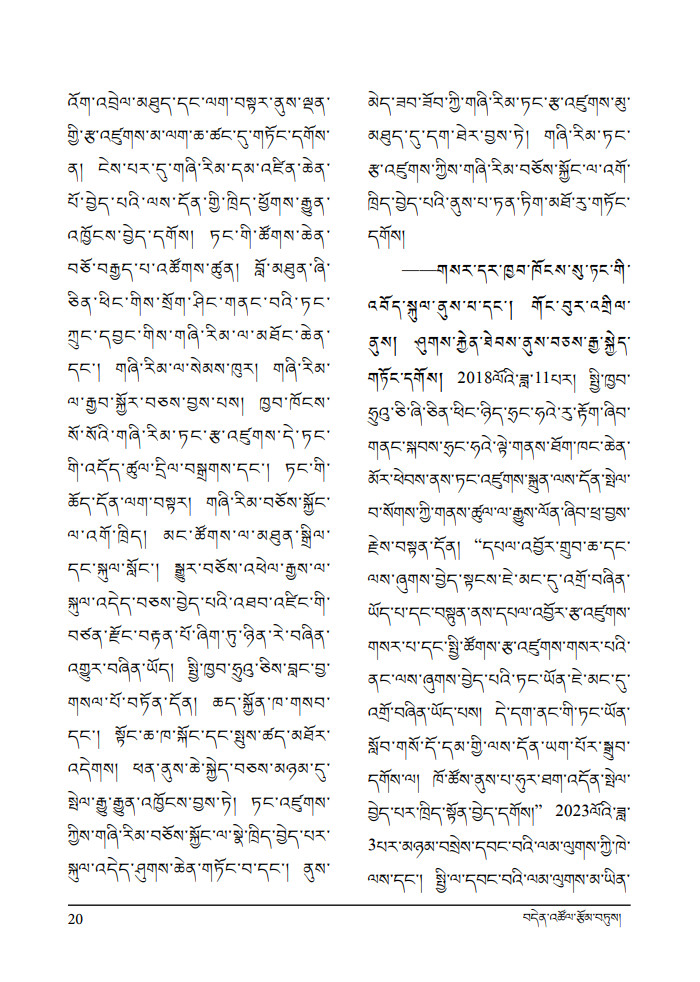 འོག་འབྲེལ་མཐུད་དང་ལག་བསྟར་ནུས་ལྡན་
གྱི་རྩ་འཛུགས་མ་ལག་ཆ་ཚང་དུ་གཏོང་དགོས་
ན། ངེས་པར་དུ་གཞི་རིམ་དམ་འཛིན་ཆེན་
པོ་བྱེད་པའི་ལས་དོན་གྱི་ཁྲིད་ཕྱོགས་རྒྱུན་
འཁྱོངས་བྱེད་དགོས། ཏང་གི་ཚོགས་ཆེན་
བཅོ་བརྒྱད་པ་འཚོགས་ཚུན། བློ་མཐུན་ཞི་
ཅིན་ཕིང་གིས་སྲོག་ཤིང་གནང་བའི་ཏང་
ཀྲུང་དབྱང་གིས་གཞི་རིམ་ལ་མཐོང་ཆེན་
དང་། གཞི་རིམ་ལ་སེམས་ཁུར། གཞི་རིམ་
ལ་རྒྱབ་སྐྱོར་བཅས་བྱས་པས། ཁྱབ་ཁོངས་
སོ་སོའི་གཞི་རིམ་ཏང་རྩ་འཛུགས་དེ་ཏང་
གི་འདོད་ཚུལ་དྲིལ་བསྒྲགས་དང་། ཏང་གི་
ཆོད་དོན་ལག་བསྟར། གཞི་རིམ་བཅོས་སྐྱོང་
ལ་འགོ་ཁྲིད། མང་ཚོགས་ལ་མཐུན་སྒྲིལ་
དང་སྐུལ་སློང་། སྒྱུར་བཅོས་འཕེལ་རྒྱས་ལ་
སྐུལ་འདེད་བཅས་བྱེད་པའི་འཐབ་འཛིང་གི་
བཙན་རྫོང་བརྟན་པོ་ཞིག་ཏུ་ཉིན་རེ་བཞིན་
འགྱུར་བཞིན་ཡོད། སྤྱི་ཁྱབ་ཧྲུའུ་ཅིས་བླང་བྱ་
གསལ་པོ་བཏོན་དོན། ཆད་སྐྱོན་ཁ་གསབ་
དང་། སྟོང་ཆ་ཁ་སྐོང་དང་སྤུས་ཚད་མཐོར་
འདེགས། ཕན་ནུས་ཆེ་སྐྱེད་བཅས་མཉམ་དུ་
སྤེལ་རྒྱུ་རྒྱུན་འཁྱོངས་བྱས་ཏེ། ཏང་འཛུགས་
ཀྱིས་གཞི་རིམ་བཅོས་སྐྱོང་ལ་སྣེ་ཁྲིད་བྱེད་པར་
སྐུལ་འདེད་ཤུགས་ཆེན་གཏོང་བ་དང་། ནུས་
མེད་ཟབ་ཟོབ་ཀྱི་གཞི་རིམ་ཏང་རྩ་འཛུགས་མུ་
མཐུད་དུ་དག་ཐེར་བྱས་ཏེ། གཞི་རིམ་ཏང་
རྩ་འཛུགས་ཀྱིས་གཞི་རིམ་བཅོས་སྐྱོང་ལ་འགོ་
ཁྲིད་བྱེད་པའི་ནུས་པ་ཏན་ཏིག་མཐོ་རུ་གཏོང་
དགོས།
——གསར་དར་ཁྱབ་ཁོངས་སུ་ཏང་གི་
འབོད་སྐུལ་ནུས་པ་དང་། གོང་བུར་འགྲིལ་
ནུས། ཤུགས་རྐྱེན་ཐེབས་ནུས་བཅས་རྒྱ་སྐྱེད་
གཏོང་དགོས། 2018ལོའི་ཟླ་11པར། སྤྱི་ཁྱབ་
ཧྲུའུ་ཅི་ཞི་ཅིན་ཕིང་ཉིད་ཧྲང་ཧའེ་རུ་རྟོག་ཞིབ་
གནང་སྐབས་ཧྲང་ཧའེ་ལྟེ་གནས་ཐོག་ཁང་ཆེན་
མོར་ཕེབས་ནས་ཏང་འཛུགས་སྐྲུན་ལས་དོན་སྤེལ་
བ་སོགས་ཀྱི་གནས་ཚུལ་ལ་རྒྱུས་ལོན་ཞིབ་ཕྲ་བྱས་
རྗེས་བསྟན་དོན། “དཔལ་འབྱོར་གྲུབ་ཆ་དང་
ལས་ཞུགས་བྱེད་སྟངས་ཇེ་མང་དུ་འགྲོ་བཞིན་
ཡོད་པ་དང་བསྟུན་ནས་དཔལ་འབྱོར་རྩ་འཛུགས་
གསར་པ་དང་སྤྱི་ཚོགས་རྩ་འཛུགས་གསར་པའི་
ནང་ལས་ཞུགས་བྱེད་པའི་ཏང་ཡོན་ཇེ་མང་དུ་
འགྲོ་བཞིན་ཡོད་པས། དེ་དག་ནང་གི་ཏང་ཡོན་
སློབ་གསོ་དོ་དམ་གྱི་ལས་དོན་ཡག་པོར་སྒྲུབ་
དགོས་ལ། ཁོ་ཚོས་ནུས་པ་ཧུར་ཐག་འདོན་སྤེལ་
བྱེད་པར་ཁྲིད་སྟོན་བྱེད་དགོས།” 2023ལོའི་ཟླ་
3པར་མཉམ་བསྲེས་དབང་བའི་ལམ་ལུགས་ཀྱི་ཁེ་
ལས་དང་། སྤྱི་ལ་དབང་བའི་ལམ་ལུགས་མ་ཡིན་
20 བདེན་འཚོལ་རྩོམ་བཏུས།